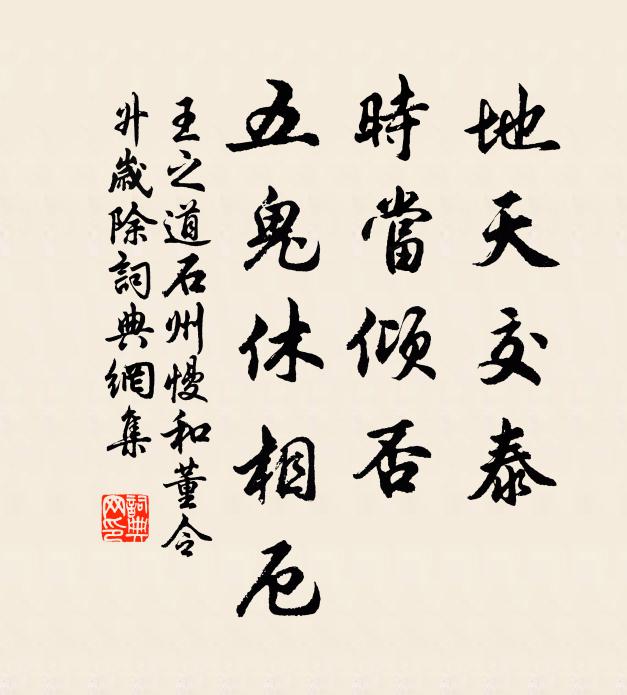 地天交泰
時當傾否
五鬼休相厄
王之道石州慢和董令
升歲除詞典網集
詞典網印